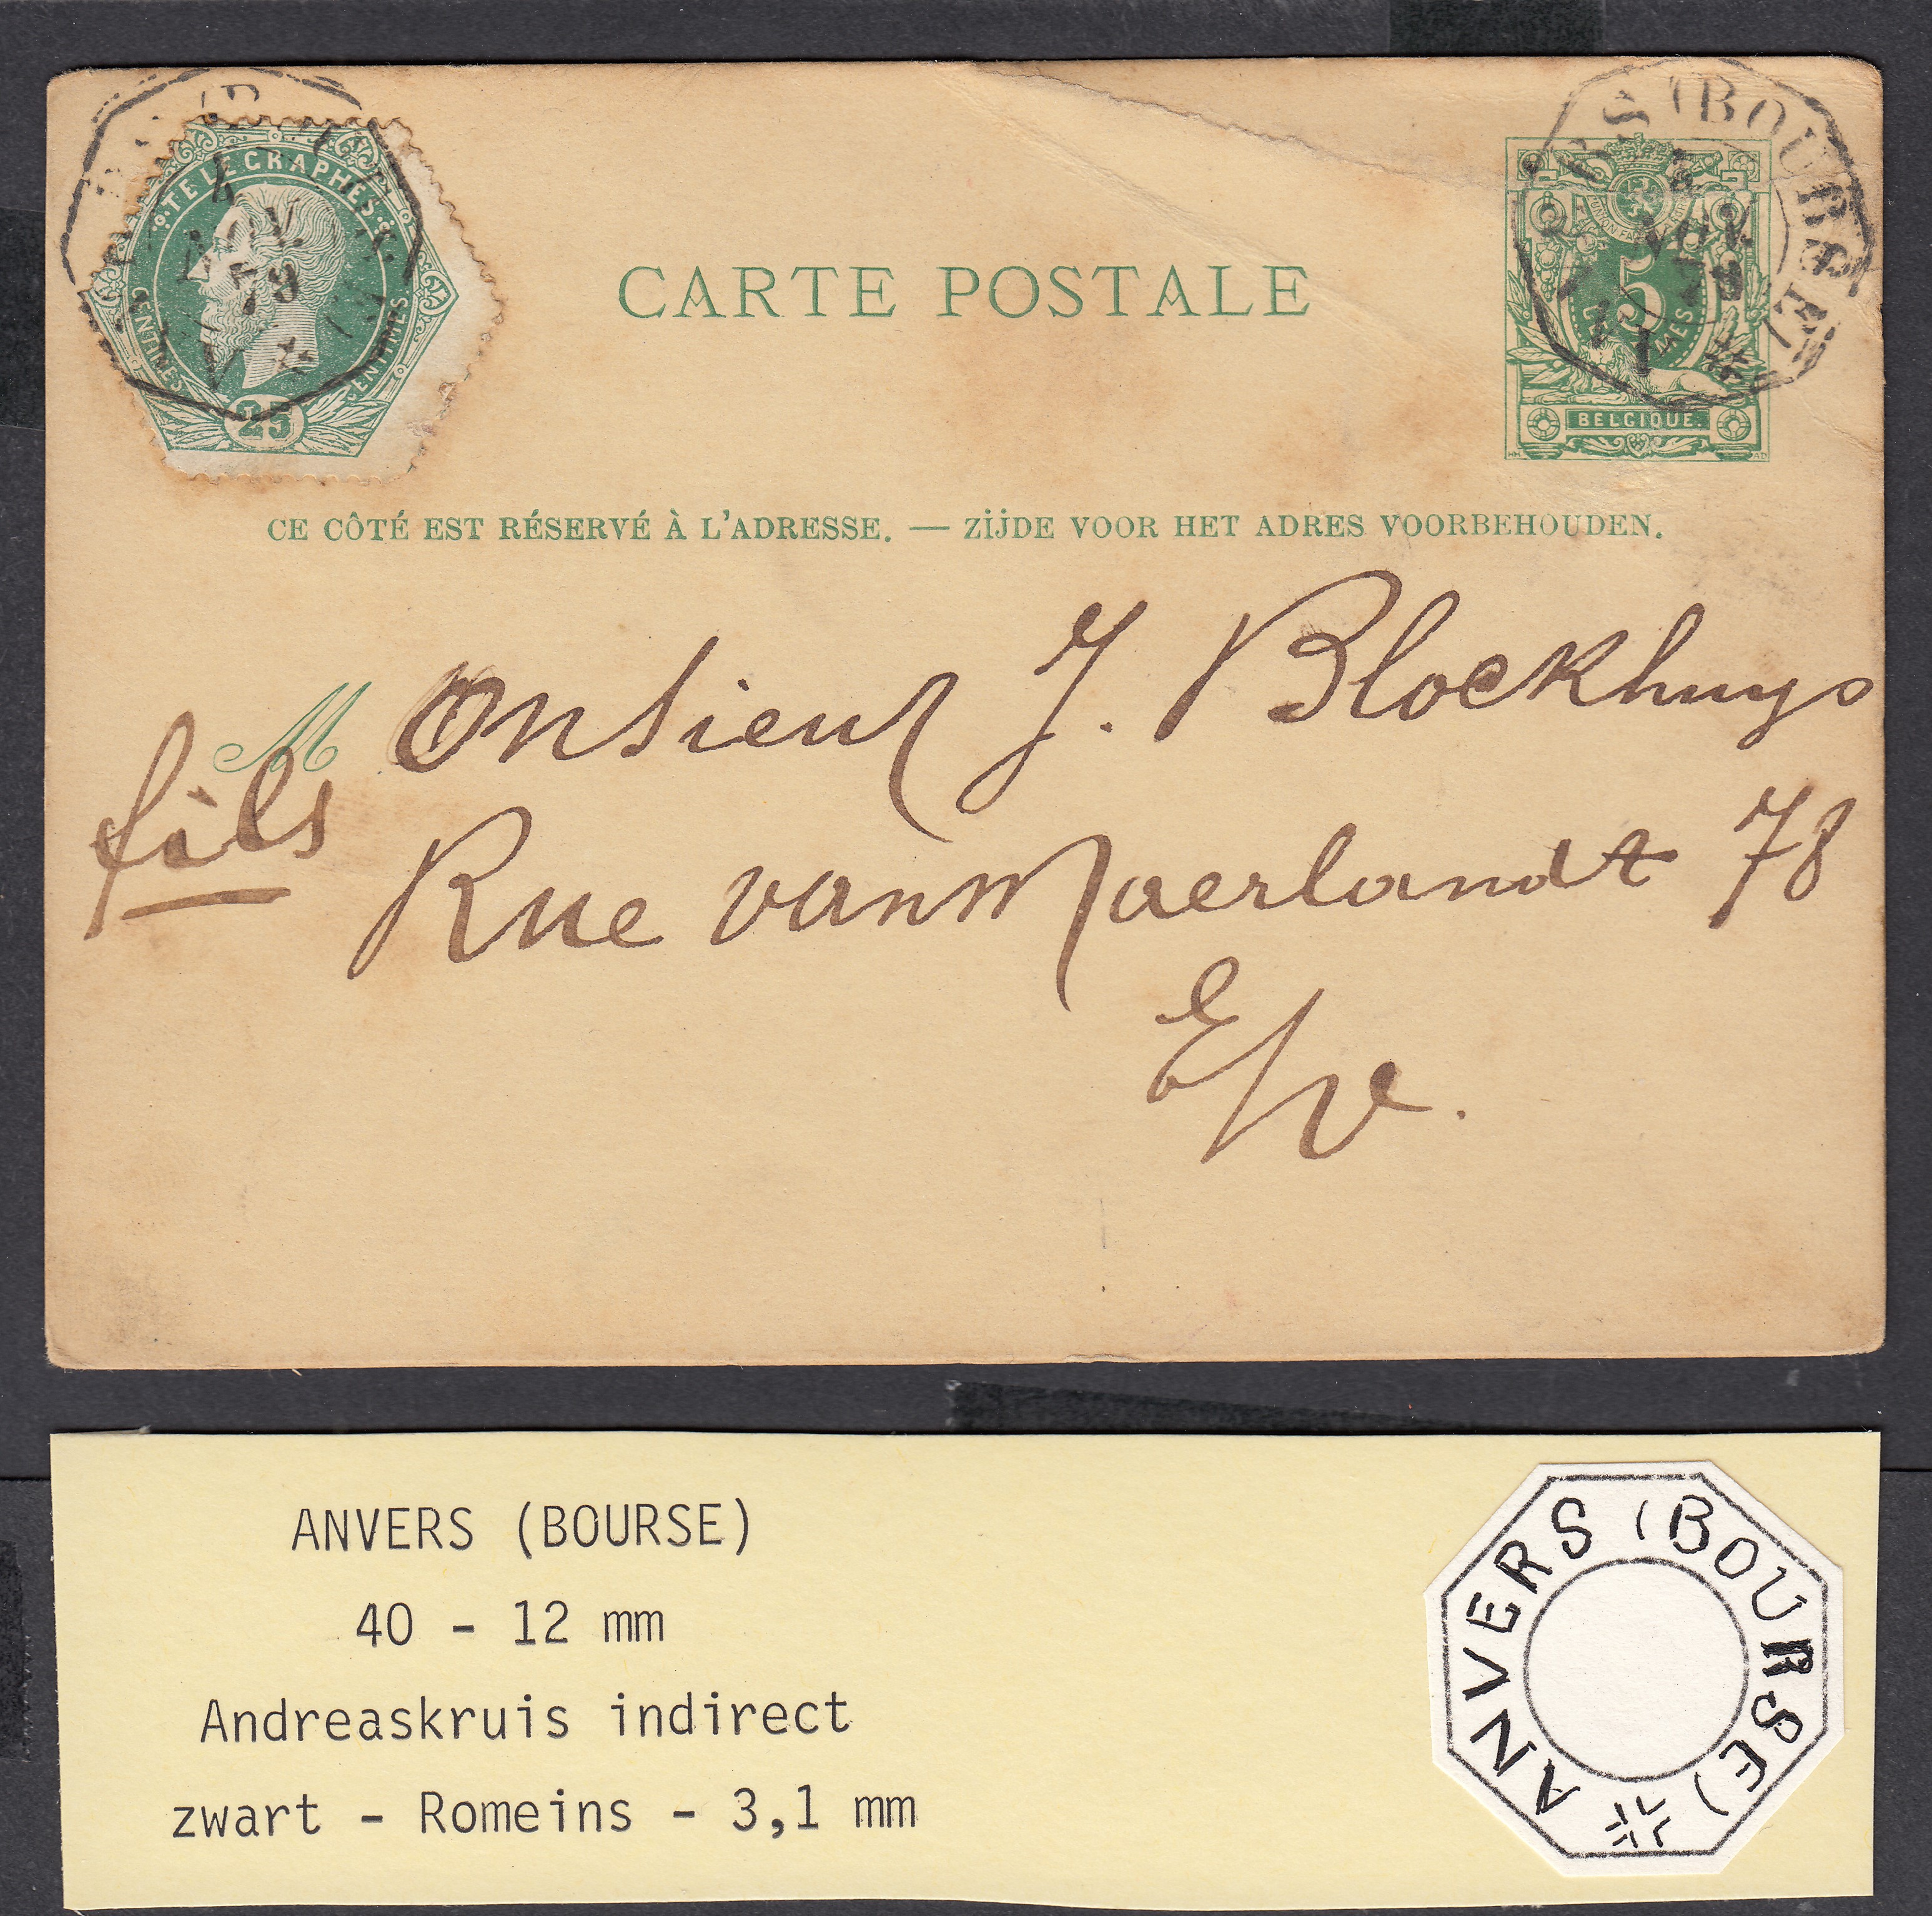 TÉLÉGRAPHES
4
NOV.
79
CENTIMES 25 CENTIMES
CARTE POSTALE
RS (BOURSE)
4
NOV.
79
UNION FAIT
5
BELGIQUE.
CE CÔTÉ EST RÉSERVÉ À L'ADRESSE. — ZIJDE VOOR HET ADRES VOORBEHOUDEN.
Monsieur J. Blockhuys
fils
Rue van Maerlandt 78
E/V.
ANVERS (BOURSE)
40 - 12 mm
Andreaskruis indirect
zwart - Romeins - 3,1 mm
ANVERS (BOURSE)